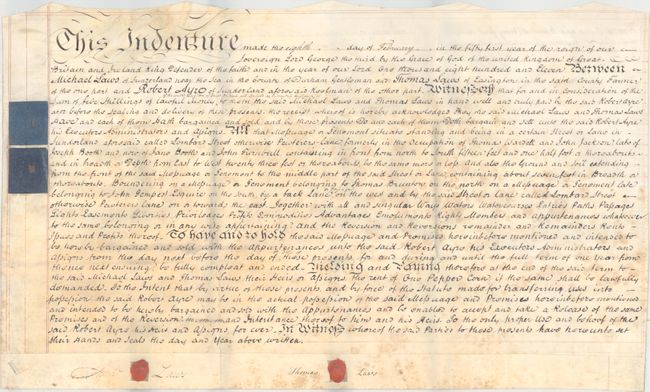 This Indenture made the eighth day of February in the fifty first year of the reign of our
Sovereign Lord George the third by the Grace of God of the united Kingdom of Great
Britain and Ireland King Defender of the faith and in the year of our Lord One thousand and eight hundred and Eleven Between
Michael Laws of Sunderland near the Sea in the County of Durham Gentleman and Thomas Laws of Easington in the said County Farmer
of the one part and Robert Ayre of Sunderland aforesaid Keelman of the other part. Witnesseth that for and in consideration of the
Sum of five Shillings of lawful Money to them the said Michael Laws and Thomas Laws in hand well and truly paid by the said Robert Ayre
at or before the Sealing and delivery of these presents the receipt whereof is hereby acknowledged They the said Michael Laws and Thomas Laws
Have and each of them Hath bargained and sold and by these presents Do and each of them Doth bargain and sell unto the said Robert Ayre
his Executors Administrators and Assigns. All that Messuage or Tenement situate standing and being in a certain Street or Lane in
Sunderland aforesaid called Lombard Street otherwise Pewterers Lane formerly in the occupation of Thomas and John Jackson late of
Ralph Booth and now of Ann Booth and John containing in front from north to South fifteen feet and one half foot or thereabouts
and in breadth or Depth from East to West twenty three feet or thereabouts, be the same more or less And also the Ground and Soil extending
from the front of the said Messuage or Tenement to the middle part of the said Street or Lane, containing about seven feet in Breadth or
thereabouts. Boundering on a Messuage or Tenement belonging to Thomas on the north on a Messuage or Tenement late
belonging to John Tempest Esquire on the South by a back Lane on the west and by the said Street or Lane called Lombard Street
otherwise Pewterers lane on or towards the east Together with all and singular Ways Waters Watercourses Entries Paths Passages
Lights Easements Liberties Privileges Profits Commodities Advantages Emoluments Rights Members and appurtenances whatsoever
to the same belonging or in any wise appertaining And the Reversion and Reversions remainder and Remainders Rents
Issues and Profits thereof. To have and to hold the said Messuage and Premises hereinbefore mentioned and intended to
be hereby bargained and sold with the appurtenances unto the said Robert Ayre his Executors Administrators and
Assigns from the day next before the day of these presents for and during and until the full term of One Year from
thence next ensuing, be fully compleat and ended Yielding and Paying therefore at the end of the said term to
the said Michael Laws and Thomas Laws their Heirs or Assigns the rent of One Pepper Corn if the same shall be lawfully
demanded. To the Intent that by virtue of these presents and by force of the Statute made for transferring Uses into
possession the said Robert Ayre may be in the actual possession of the said Messuage and Premises hereinbefore mentioned
and intended to be hereby bargained and sold with the Appurtenances and be enabled to accept and take a Release of the same
Premises and of the Reversion and Inheritance thereof to him and his Heirs. To the only proper Use and behoof of the
said Robert Ayre his Heirs and Assigns for ever. In Witness whereof the said Parties to these presents have hereunto set
their Hands and Seals the day and Year above written.
Laws Thomas Laws